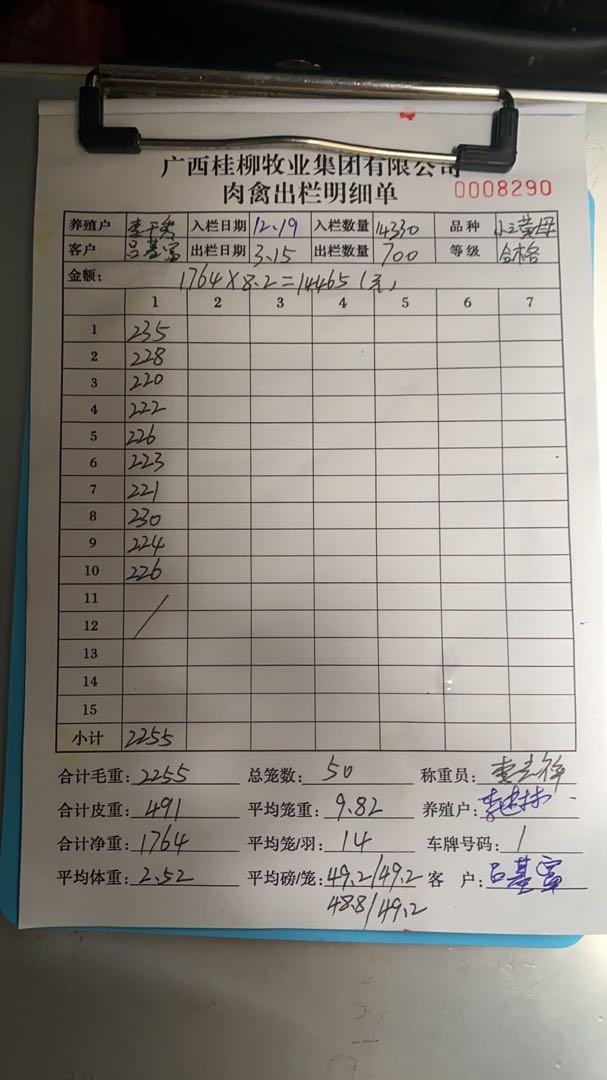 广西桂柳牧业集团有限公司
肉禽出栏明细单 0008290
养殖户 李干秀 入栏日期 12.19 入栏数量 14330 品种
客户 吕基富 出栏日期 3.15 出栏数量 700 等级 合格
金额: 1764×8.2=14465(元)
1 2 3 4 5 6 7
1 235
2 228
3 220
4 222
5 226
6 223
7 221
8 230
9 224
10 226
11
12
13
14
15
小计 2255
合计毛重: 2255 总笼数: 50 称重员:
合计皮重: 491 平均笼重: 9.82 养殖户:
合计净重: 1764 平均笼/羽: 14 车牌号码: 1
平均体重: 2.52 平均磅/笼: 49.2/49.2 客 户: 吕基富
48.8/49.2